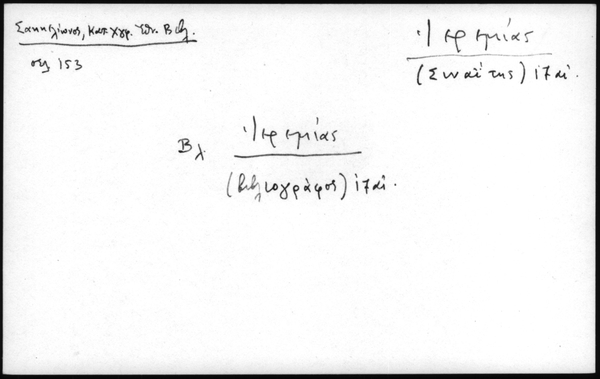 Σακκελίωνος, Κατ. χγρ. Ἐθν. Βιβλ.
σελ 153
Ἰερεμίας
(Σιναΐτης) 17 αἰ.
Βλ. Ἰερεμίας
(βιβλιογράφος) 17 αἰ.